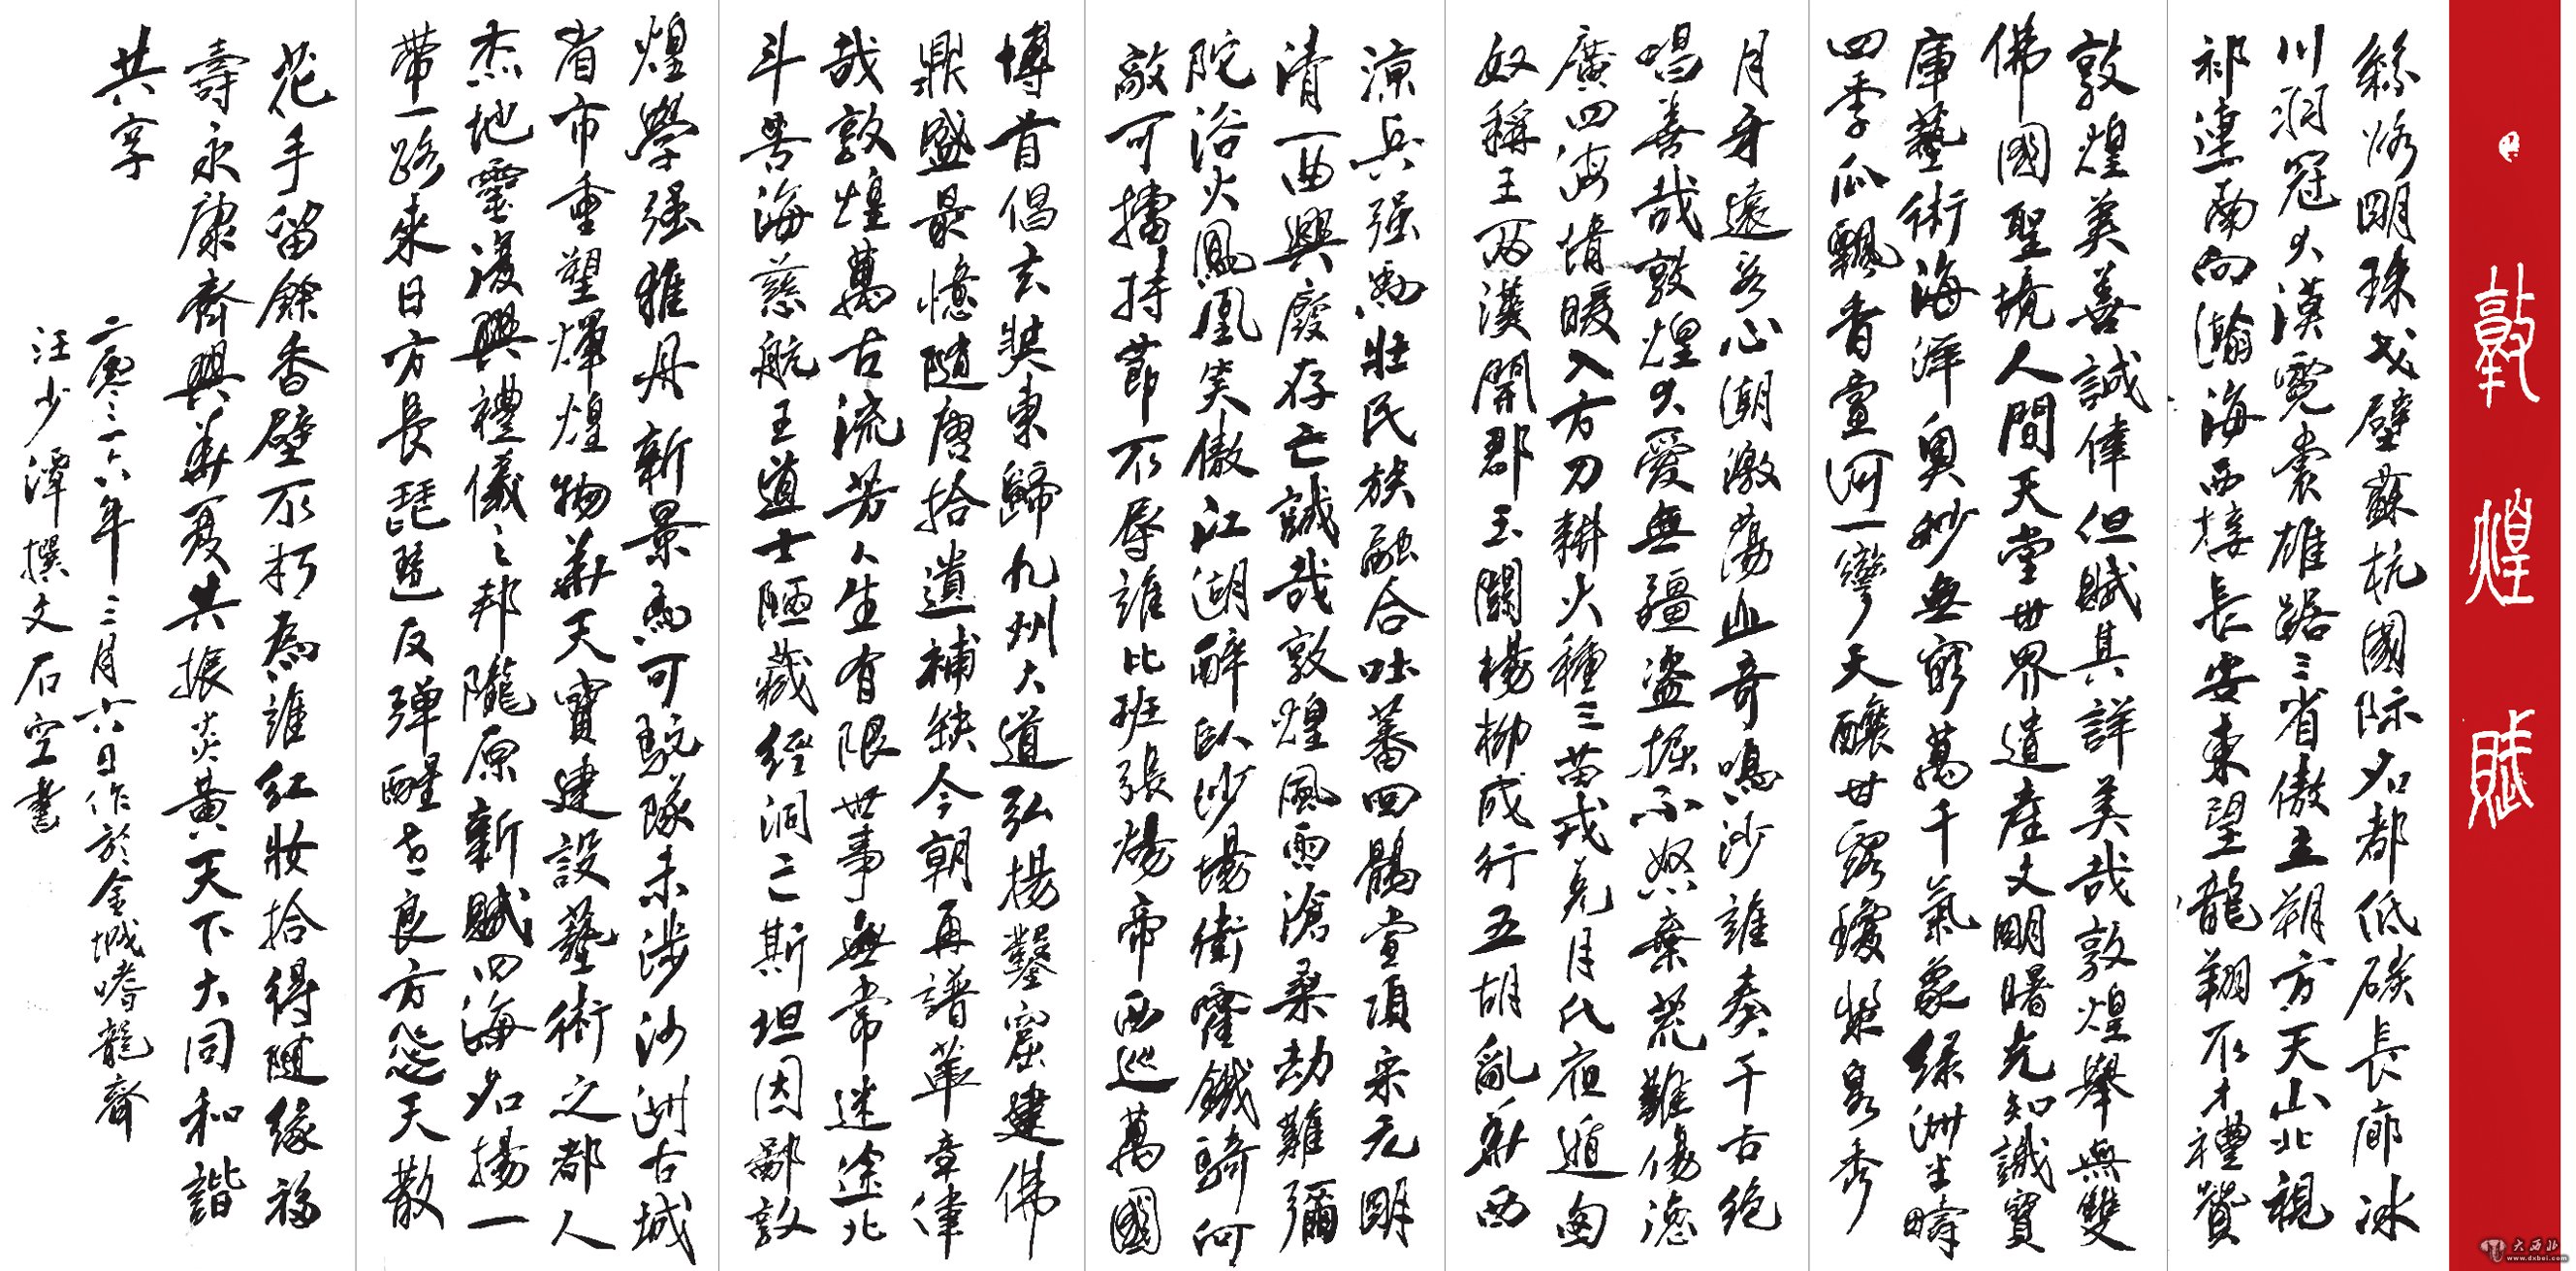 敦煌賦
絲路明珠戈壁蘇杭國际名都低碳長廊冰
川洞冠大漠霓裳雄踞三省傲立朔方天山北視
祁連南向瀚海西接長安東望龍翔不才禮贊
敦煌美善誠偉但賦其詳美哉敦煌舉無雙
佛國聖境人間天堂世界遺產文明曙光知識寶
庫藝術海洋奥妙無窮萬千氣象綠洲平疇
四季瓜飄香壹河一彎天釀甘露瓊漿泉秀
月牙遠客心潮激蕩山奇鳴沙誰奏千古絶
唱善哉敦煌大愛無疆盗掘不怒棄荒難傷德
廣四海情暖八方刀耕火種三苗戎羌月氏夜遁匈
奴稱王兩漢開郡玉關楊柳成行五胡亂華西
涼兵强馬壯民族融合吐蕃回鶻党項宋元明
清一曲興廢存亡誠哉敦煌風雨滄桑劫難彌
陀浴火鳳凰笑傲江湖醉卧沙場衛霍鐵騎何
敵可擋持節不辱誰比班張煬帝西巡萬國
博首倡玄奘東歸九州大道弘揚鑿窟建佛
鼎盛最憶隨唐拾遺補缺今朝再譜華章偉
哉敦煌萬古流芳人生有限世事無常迷途北
斗苦海慈航王道士陋藏經洞亡斯坦因鄙敦
煌學强雅丹新景馬可駝隊未涉沙洲古城
省市重塑輝煌物華天寶建設藝術之都人
杰地靈復興禮儀之邦隴原新賦四海名揚一
帶一路來日方長琵琶反彈醒世良方飛天散
花手留餘香壁不朽為誰紅妝拾得隨緣福
壽永康齊興華夏共振炎黃天下大同和諧
共享
二零一六年三月六日作於金城嗜龍齋
汪少潭撰文石空書
大西北
www.dxbei.com